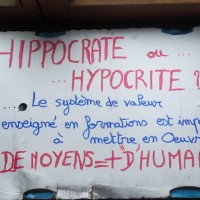 HIPPOCRATE ou
... HYPOCRITE ?
... Le système de valeur
enseigné en formations est imp
à mettre en Oeuv
DE MOYENS = + D'HUMA